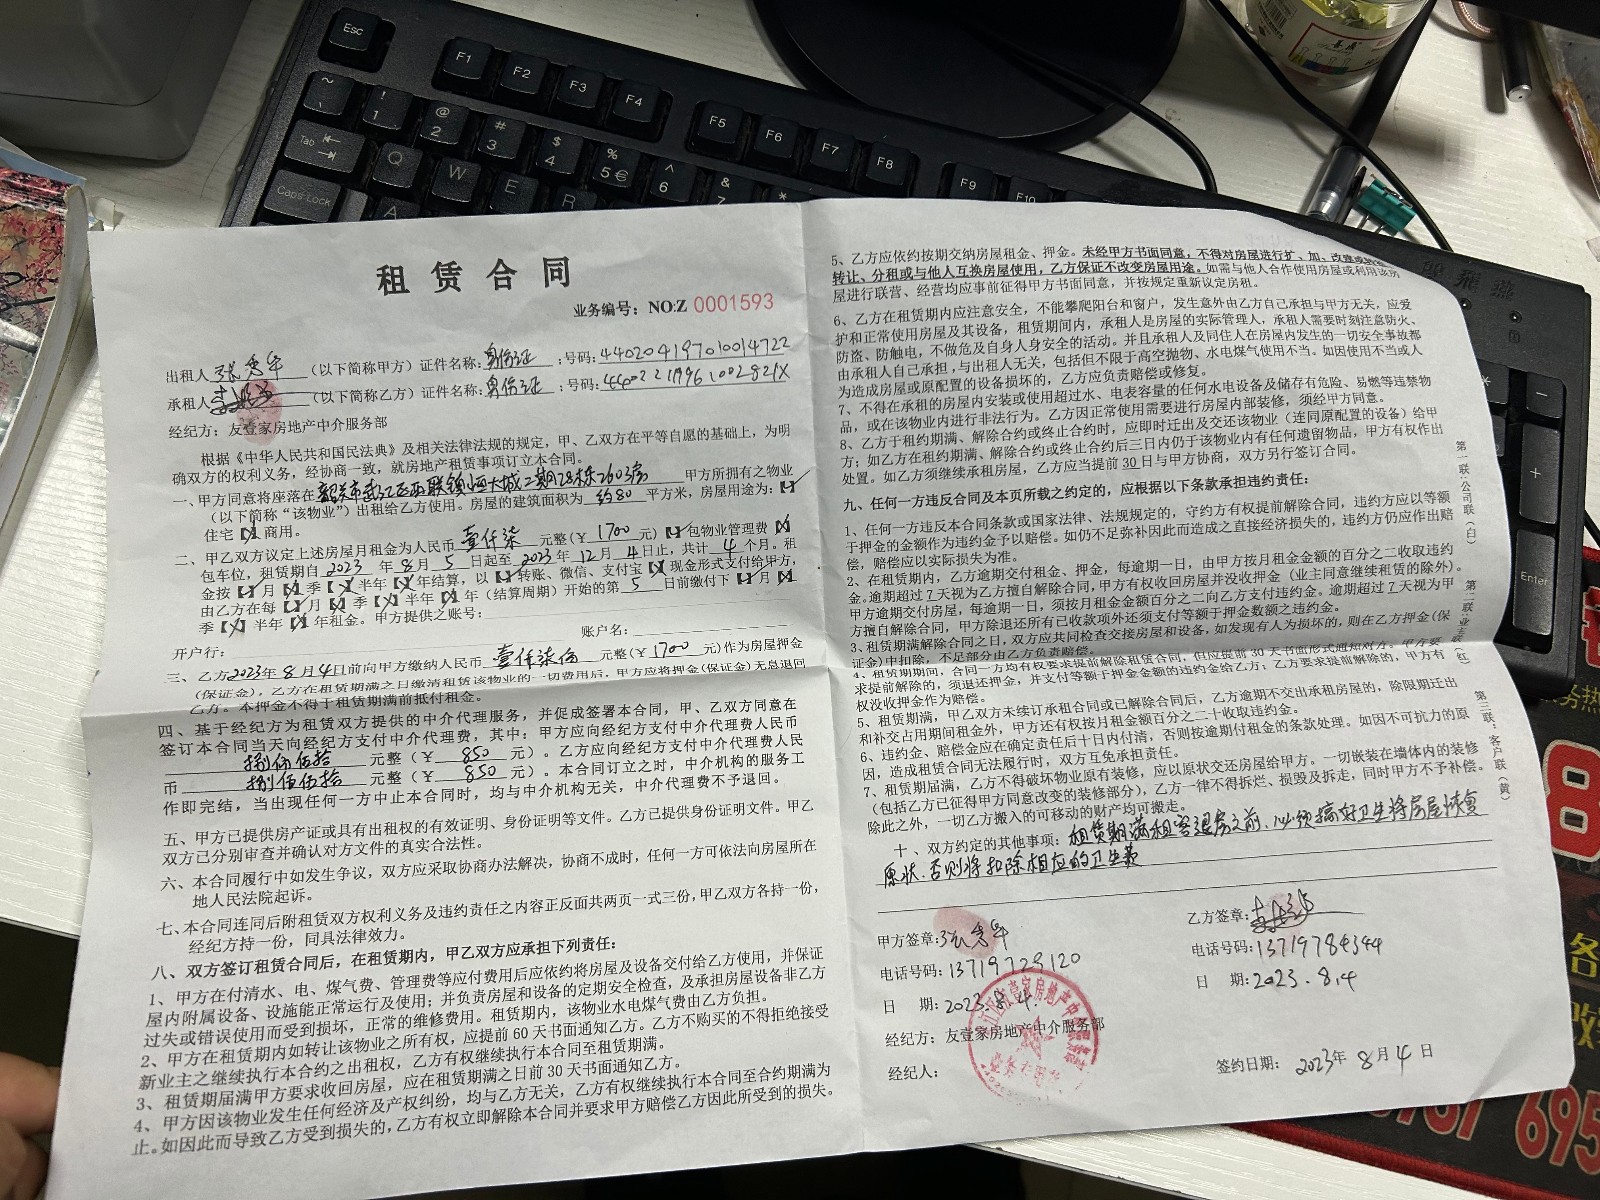 租赁合同
业务编号：NO:Z 0001593
出租人 张秀华 （以下简称甲方）证件名称：身份证 ；号码：440204197010014722
承租人 （以下简称乙方）证件名称：身份证 ；号码：
经纪方：友壹家房地产中介服务部
根据《中华人民共和国民法典》及相关法律法规的规定，甲、乙双方在平等自愿的基础上，为明
确双方的权利义务，经协商一致，就房地产租赁事项订立本合同。
一、甲方同意将座落在 韶关市武江区西联镇恒大城二期28栋2603房 甲方所拥有之物业
（以下简称“该物业”）出租给乙方使用。房屋的建筑面积为 约80 平方米，房屋用途为：【√】
住宅【X】商用。
二、甲乙双方议定上述房屋月租金为人民币 壹仟柒 元整（￥1700 元）【√】包物业管理费【X】
包车位，租赁期自 2023 年 8 月 5 日起至 2023 年 12 月 4 日止，共计 4 个月。租
金按【√】月【X】季【X】半年【X】年结算，以【√】转账、微信、支付宝【X】现金形式支付给甲方，
由乙方在每【√】月【X】季【X】半年【X】年（结算周期）开始的第 5 日前缴付下【√】月【X】
季【X】半年【X】年租金。甲方提供之账号：
开户行： 账户名：
三、乙方2023年8月4日前向甲方缴纳人民币 壹仟柒佰 元整（￥1700 元）作为房屋押金
（保证金），乙方在租赁期满之日缴清租赁该物业的一切费用后，甲方应将押金(保证金)无息退回
乙方。本押金不得于租赁期满前抵付租金。
四、基于经纪方为租赁双方提供的中介代理服务，并促成签署本合同，甲、乙双方同意在
签订本合同当天向经纪方支付中介代理费，其中：甲方应向经纪方支付中介代理费人民币
捌佰伍拾 元整（￥ 850 元）。乙方应向经纪方支付中介代理费人民
币 捌佰伍拾 元整（￥ 850 元）。本合同订立之时，中介机构的服务工
作即完结，当出现任何一方中止本合同时，均与中介机构无关，中介代理费不予退回。
五、甲方已提供房产证或具有出租权的有效证明、身份证明等文件。乙方已提供身份证明文件。甲乙
双方已分别审查并确认对方文件的真实合法性。
六、本合同履行中如发生争议，双方应采取协商办法解决，协商不成时，任何一方可依法向房屋所在
地人民法院起诉。
七、本合同连同后附租赁双方权利义务及违约责任之内容正反面共两页一式三份，甲乙双方各持一份，
经纪方持一份，同具法律效力。
八、双方签订租赁合同后，在租赁期内，甲乙双方应承担下列责任：
1、甲方在付清水、电、煤气费、管理费等应付费用后应依约将房屋及设备交付给乙方使用，并保证
屋内附属设备、设施能正常运行及使用；并负责房屋和设备的定期安全检查，及承担房屋设备非乙方
过失或错误使用而受到损坏，正常的维修费用。租赁期内，该物业水电煤气费由乙方负担。
2、甲方在租赁期内如转让该物业之所有权，应提前60天书面通知乙方。乙方不购买的不得拒绝接受
新业主之继续执行本合约之出租权，乙方有权继续执行本合同至租赁期满。
3、租赁期届满甲方要求收回房屋，应在租赁期满之日前30天书面通知乙方。
4、甲方因该物业发生任何经济及产权纠纷，均与乙方无关，乙方有权继续执行本合同至合约期满为
止。如因此而导致乙方受到损失的，乙方有权立即解除本合同并要求甲方赔偿乙方因此所受到的损失。
5、乙方应依约按期交纳房屋租金、押金。未经甲方书面同意，不得对房屋进行扩、加、改建或
转让、分租或与他人互换房屋使用，乙方保证不改变房屋用途。如需与他人合作使用房屋或利用该房
屋进行联营、经营均应事前征得甲方书面同意，并按规定重新议定房租。
6、乙方在租赁期内应注意安全，不能攀爬阳台和窗户，发生意外由乙方自己承担与甲方无关，应爱
护和正常使用房屋及其设备，租赁期间内，承租人是房屋的实际管理人，承租人需要时刻注意防火、
防盗、防触电，不做危及自身人身安全的活动。并且承租人及同住人在房屋内发生的一切安全事故都
由承租人自己承担，与出租人无关，包括但不限于高空抛物、水电煤气使用不当。如因使用不当或人
为造成房屋或原配置的设备损坏的，乙方应负责赔偿或修复。
7、不得在承租的房屋内安装或使用超过水、电表容量的任何水电设备及储存有危险、易燃等违禁物
品，或在该物业内进行非法行为。乙方因正常使用需要进行房屋内部装修，须经甲方同意。
8、乙方于租约期满、解除合约或终止合约时，应即时迁出及交还该物业（连同原配置的设备）给甲
方；如乙方在租约期满、解除合约或终止合约后三日内仍于该物业内有任何遗留物品，甲方有权作出
处置。如乙方须继续承租房屋，乙方应当提前30日与甲方协商，双方另行签订合同。
九、任何一方违反合同及本页所载之约定的，应根据以下条款承担违约责任：
1、任何一方违反本合同条款或国家法律、法规规定的，守约方有权提前解除合同，违约方应以等额
于押金的金额作为违约金予以赔偿。如仍不足弥补因此而造成之直接经济损失的，违约方仍应作出赔
偿，赔偿应以实际损失为准。
2、在租赁期内，乙方逾期交付租金、押金，每逾期一日，由甲方按月租金金额的百分之二收取违约
金。逾期超过7天视为乙方擅自解除合同，甲方有权收回房屋并没收押金（业主同意继续租赁的除外）。
甲方逾期交付房屋，每逾期一日，须按月租金金额百分之二向乙方支付违约金。逾期超过7天视为甲
方擅自解除合同，甲方除退还所有已收款项外还须支付等额于押金数额之违约金。
3、租赁期满解除合同之日，双方应共同检查交接房屋和设备，如发现有人为损坏的，则在乙方押金(保
证金)中扣除，不足部分由乙方负责赔偿。
4、租赁期期间，合同一方均有权要求提前解除租赁合同，但应提前30天书面形式通知对方。甲方要
求提前解除的，须退还押金，并支付等额于押金金额的违约金给乙方；乙方要求提前解除的，甲方有
权没收押金作为赔偿。
5、租赁期满，甲甲乙双方未续订承租合同或已解除合同后，乙方逾期不交出承租房屋的，除限期迁出
和补交占用期间租金外，甲方还有权按月租金额百分之二十收取违约金。
6、违约金、赔偿金应在确定责任后十日内付清，否则按逾期付租金的条款处理。如因不可抗力的原
因，造成租赁合同无法履行时，双方互免承担责任。
7、租赁期届满，乙方不得破坏物业原有装修，应以原状交还房屋给甲方。一切嵌装在墙体内的装修
（包括乙方已征得甲方同意改变的装修部分），乙方一律不得拆烂、损毁及拆走，同时甲方不予补偿。
除此之外，一切乙方搬入的可移动的财产均可搬走。
十、双方约定的其他事项：租赁期满租客退房之前，必须搞好卫生将房屋恢复
原状，否则将扣除相应的卫生费
甲方签章：张秀华
电话号码：13719729120
日 期：2023.8.4
经纪方：友壹家房地产中介服务部
经纪人：
乙方签章：
电话号码：13719784344
日 期：2023.8.4
签约日期： 2023年 8月 4 日
第一联：公司联（白）
第二联：业主联（红）
第三联：客户联（黄）
Esc
F1
F2
F3
F4
F5
F6
F7
F8
F9
F10
Tab
Q
W
E
R
Caps Lock
A
Enter